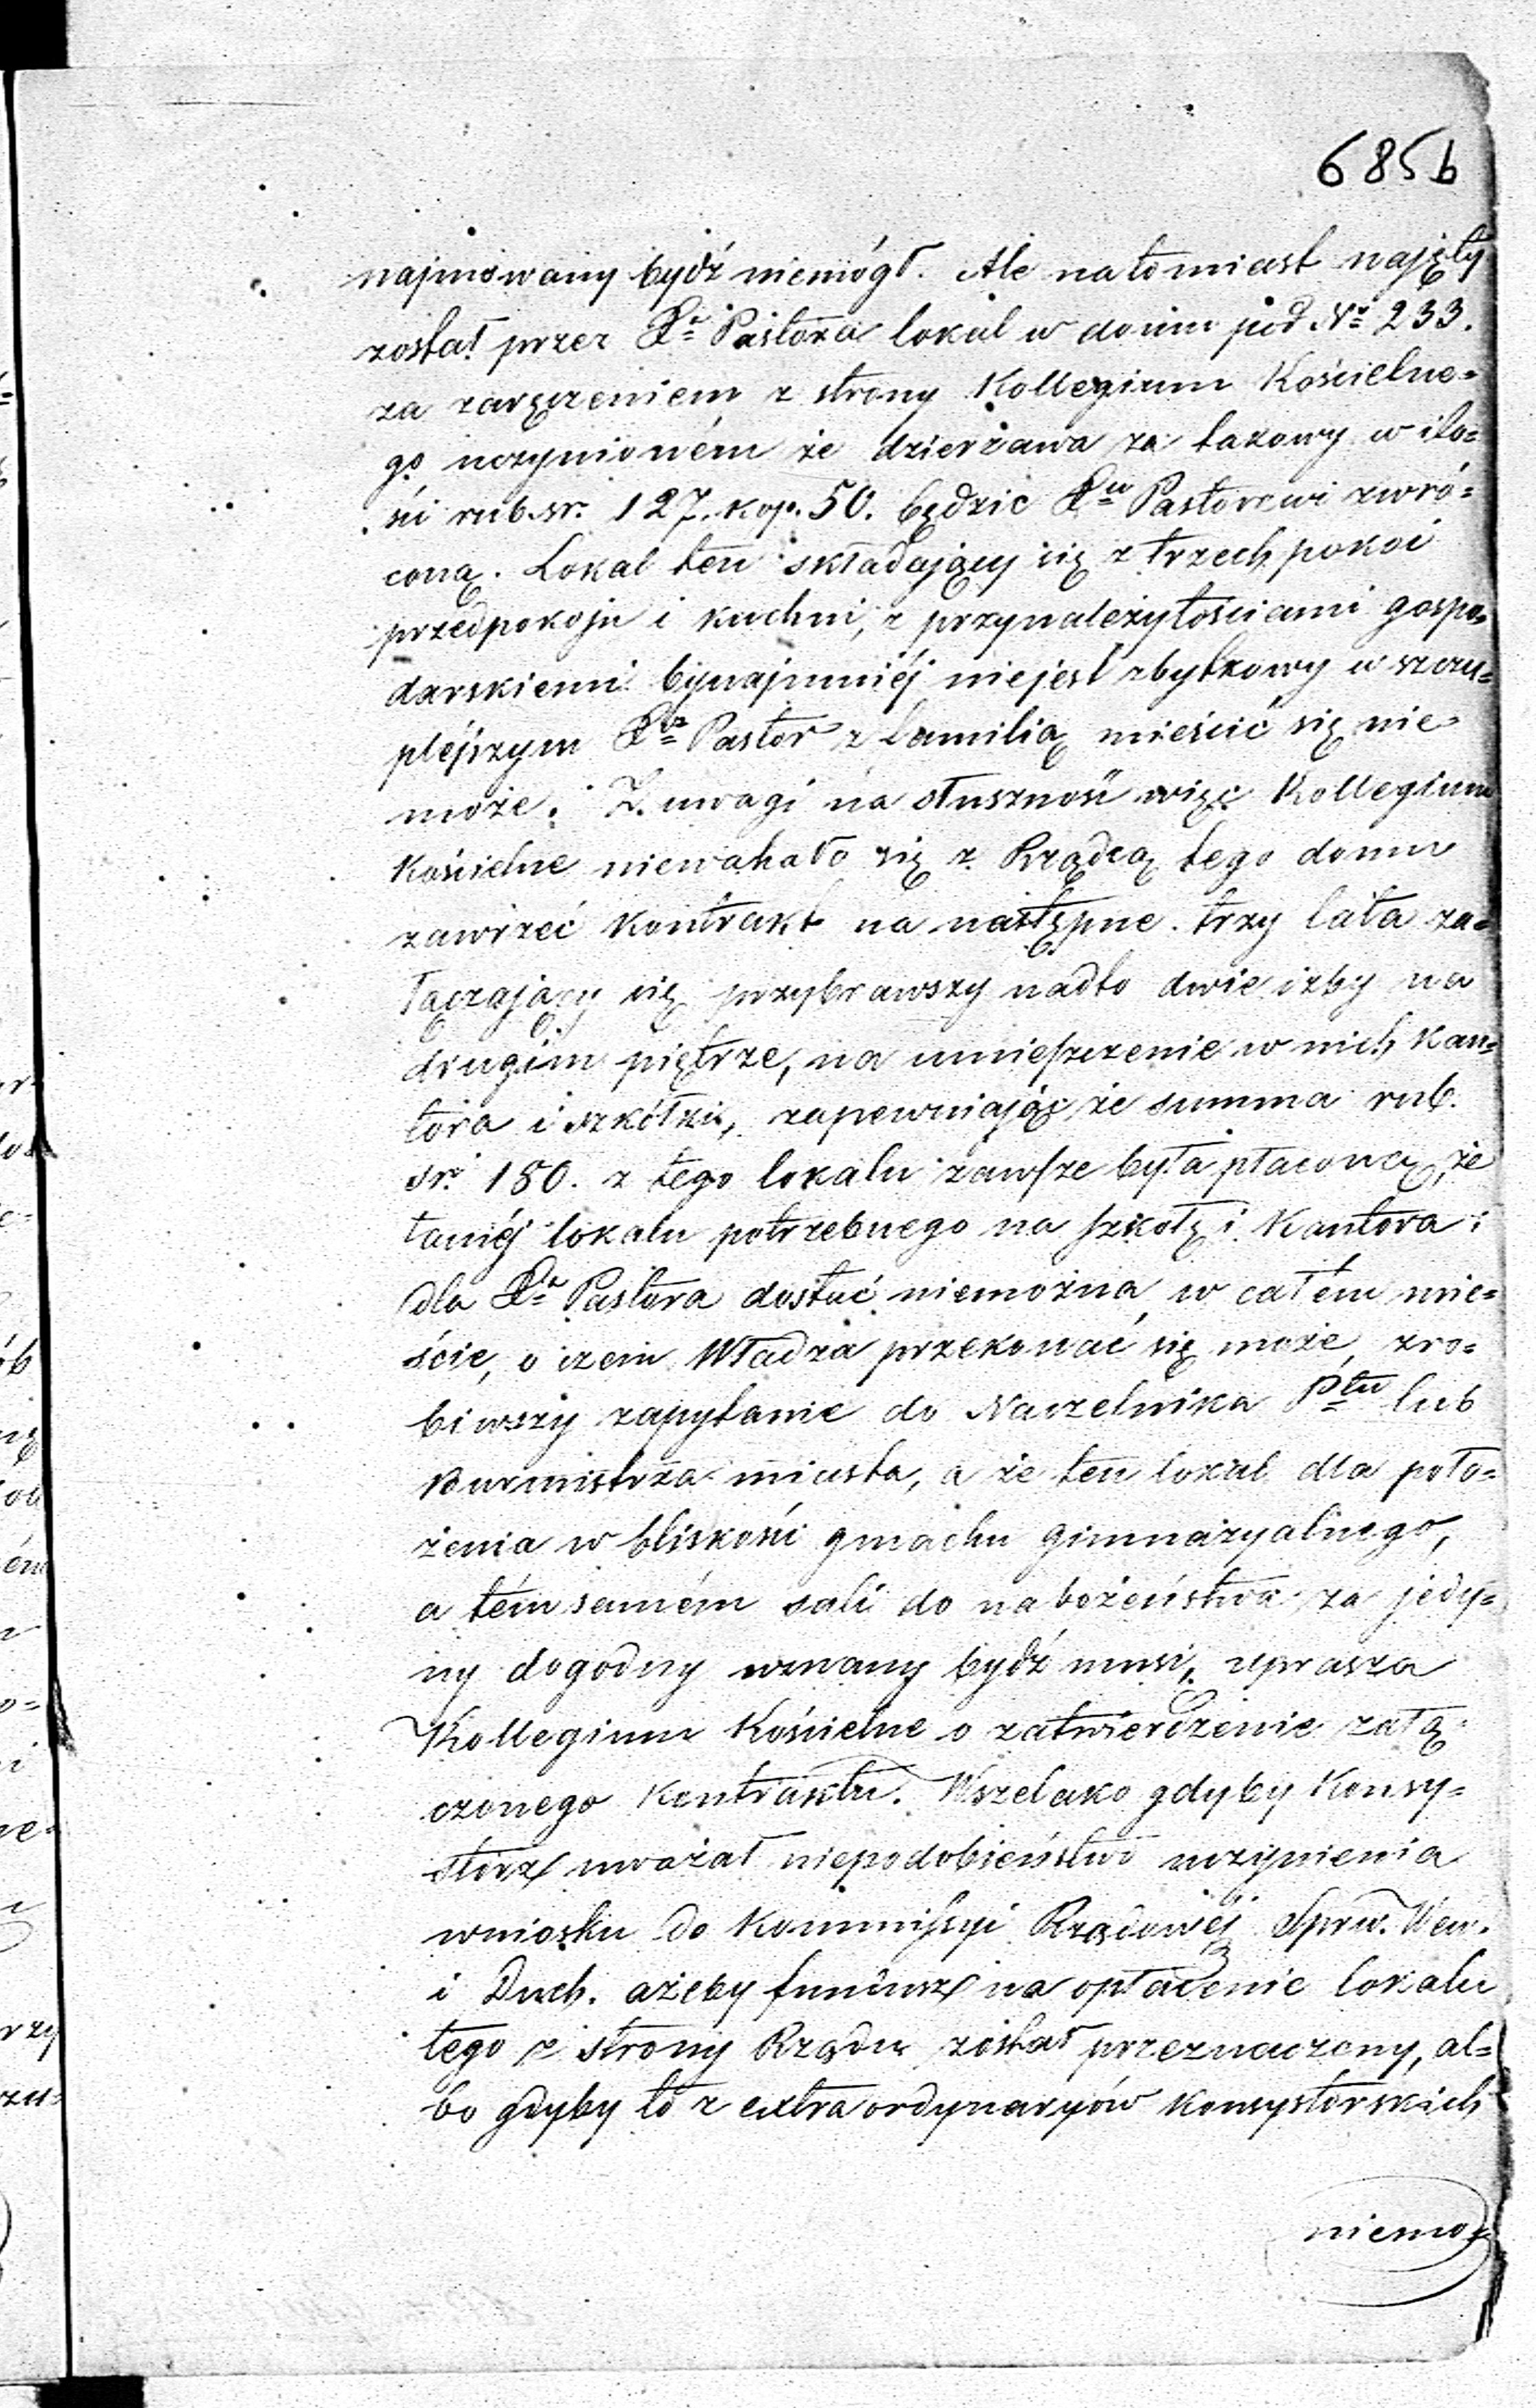 685b
najmowany bydź niemógł. Ale natomiast najęty
został przez Xa Pastora lokal w domu pod Nr 233.
za zaręczeniem z strony Kollegium Kościelne=
go uczynioném że dzierżawa za takowy w ilo=
ści rub. sr. 127. kop. 50. będzie Xu Pastorowi zwró=
coną. Lokal ten składający się z trzech pokoi
przedpokoju i kuchni, z przynależytościami gospo=
darskiemi bynajmniéj niejest zbytkowy w szczu=
plejszym Xdz Pastor z familią mieścić się nie
może. Z uwagi na słuszność więc Kollegium
Kościelne niewahało się z Rządcą tego domu
zawrzeć Kontrakt na następne trzy lata za=
łączający się przybrawszy nadto dwie izby na
drugim piętrze, na umieszczenie w nich Kan=
tora i szkółki, zapewniając że summa rub.
sr. 180. z tego lokalu zawsze była płaconą, że
taniéj lokalu potrzebnego na szkołę i Kantora i
dla Xa Pastora dostać niemożna w całem mie=
ście, o czem Władza przekonać się może, zro=
biwszy zapytanie do Naczelnika Ptu lub
Burmistrza miasta, a że ten lokal dla poło=
żenia w bliskości gmachu Gimnazyalnego,
a tém samém sali do nabożeństwa za jedy=
ny dogodny uznany bydź musi, uprasza
Kollegium Kościelne o zatwierdzenie załą=
czonego Kontraktu. Wszelako gdyby Konsy=
storz uważał niepodobieństwo uczynienia
wniosku do Kommissyi Rządowéj Spraw. Wew.
i Duch. ażeby fundusz na opłacenie lokalu
tego z strony Rządu został przeznaczony, al=
bo gdyby to z extraordynaryów Konsystorskich
niemo=